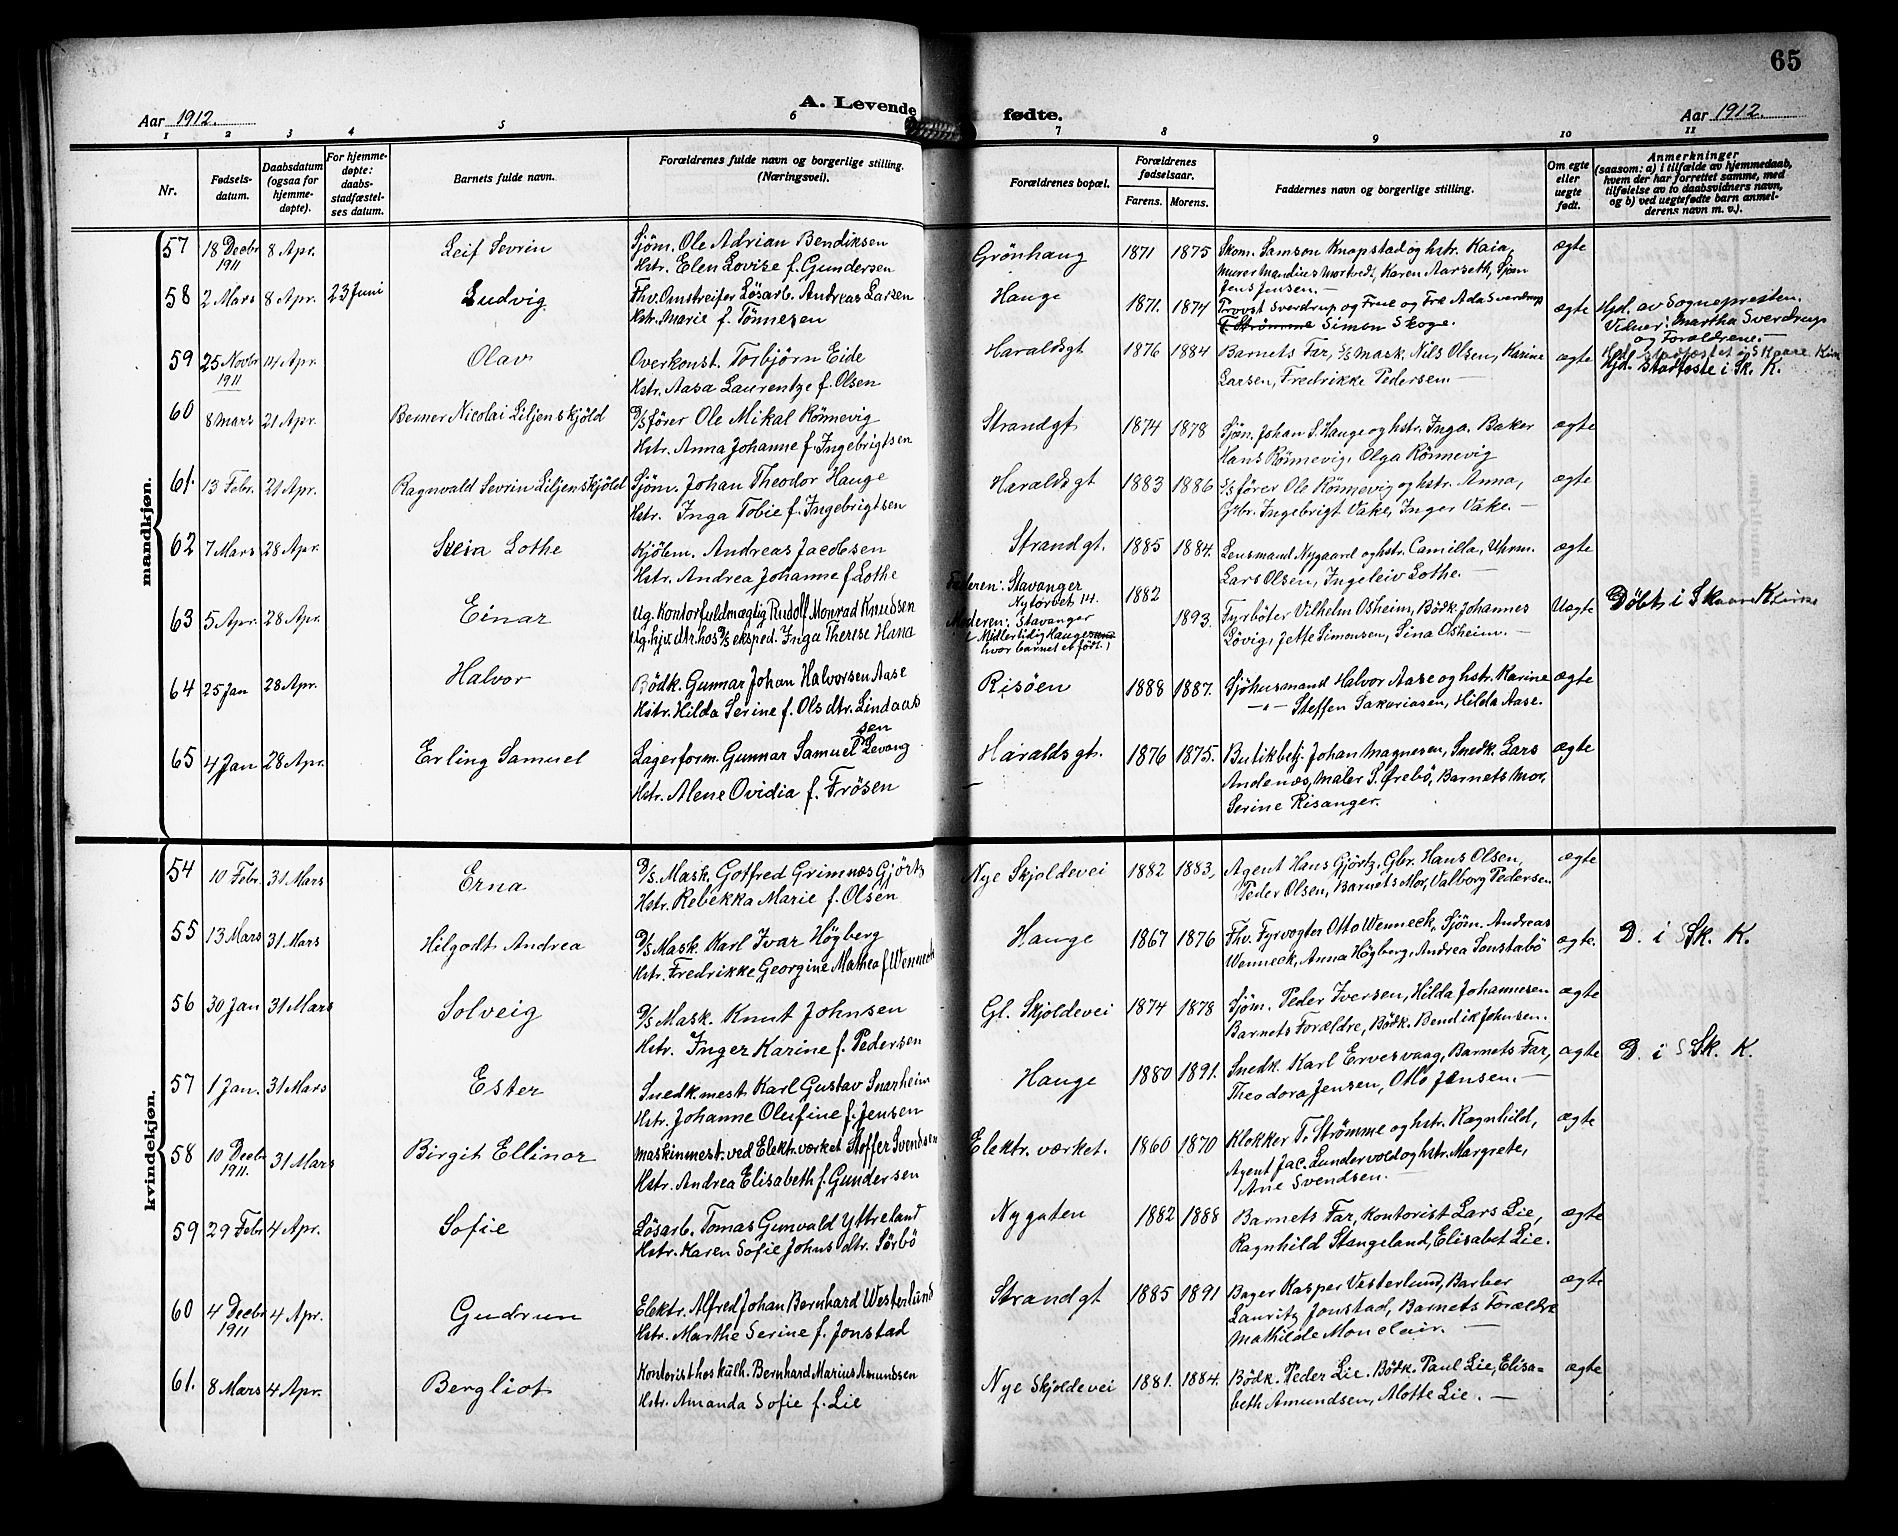 65
Aar 1912.
A. Levende fødte.
Aar 1912.
1 2 3 4 5 6 7 8 9 10 11
Nr.
Fødsels-datum.
Daabsdatum (ogsaa for hjemme-døpte).
For hjemme-døpte: daabs-stadfæstel-ses datum.
Barnets fulde navn.
Forældrenes fulde navn og borgerlige stilling. (Næringsvei).
Forældrenes bopæl.
Forældrenes fødselsaar.
Farens. Morens.
Faddernes navn og borgerlige stilling.
Om egte eller uegte født.
Anmerkninger (saasom: a) i tilfælde av hjemmedaab, hvem der har forrettet samme, med tilføielse av to daabsvidners navn, og b) ved uegtefødte barn anmel-derens navn m. v.).
mandkjøn.
57 18 Decbr 1911 8 Apr. Leif Sevrin
Sjøm. Ole Adrian Bendiksen
Hstr. Elen Lovise f. Gundersen
Grönhaug 1871 1875
Skom. Samson Knapstad og hstr. Kaia,
Murer Mandius Mortvedt, Karen Aarseth, Sjøm
Jens Jensen. —
ægte
58 2 Mars 8 Apr. 23 Juni Ludvig
Fhv. Omstreifer Løsarb. Andreas Larsen
Hstr. Marie f. Tönnesen
Hauge 1871. 1874
Provst Sverdrup og Frue og Frk Ada Sverdrup
T. Strömme Simon Skoge.
ægte
Hjd. av Sognepresten.
Vidner: Martha Sverdrup
og Forældrene. —
59 25 Novbr 1911 14 Apr. Olav
Overkonst. Torbjørn Eide
Hstr. Aasa Laurentze f. Olsen
Haraldsgt 1876 1884
Barnets Far, S/S Mask. Nils Olsen, Karine
Larsen, Fredrikke Pedersen. —
ægte
Hjd. stadfæstet i Skaare Kirke
Hjd. Stadfæste i Sk. K.
60 8 Mars 21 Apr. Berner Nicolai Liljenskjöld
D/S fører Ole Mikal Rönnevig
Hstr. Anna Johanne f. Ingebrigtsen
Strandgt 1874 1878
Sjøm. Johan T. Hauge og hstr. Inga. Baker
Hans Rönnevig, Olga Rönnevig
ægte
61. 13 Febr. 21 Apr. Ragnvald Sevrin Liljenskjöld
Sjøm. Johan Theodor Hauge
Hstr. Inga Tobie f. Ingebrigtsen
Haraldsgt 1883 1886
S/S fører Ole Rönnevig og hstr. Anna,
Gbr. Ingebrigt Vake, Inger Vake. —
ægte
62 7 Mars 28 Apr. Svein Lothe
Kjøbm. Andreas Jacobsen
Hstr. Andrea Johanne f Lothe
Strandgt. 1885 1884.
Lensmand Nygaard og hstr. Camilla, Uhrm.
Lars Olsen, Ingeleiv Lothe. —
ægte
63 5 Apr. 28 Apr. Einar
Ug. Kontorfuldmægtig Rudolf Monrad Knudsen
Ug. hjv. dtr. hos D/S eksped. Inga Therese Hana
Faderen: Stavanger
Nytorvet 14.
Moderen: Stavanger
Midlertidig Hauge
hvor barnet er født.
1882
1893.
Fyrböter Vilhelm Osheim, Bödk Johannes
Lövig, Jette Simonsen, Sina Osheim. —
Uægte
Döbt i Skaare Kirke
64 25 Jan 28 Apr. Halvor
Bödk. Gunnar Johan Halvorsen Aase
Hstr. Hilda Serine f. Ols dtr. Lindaas
Risöen 1888 1887.
Sjöhusmand Halvor Aase og hstr. Karine
— " — Steffen Sakariasen, Hilda Aase.
ægte
65 4 Jan 28 Apr. Erling Samuel
sen
Lagerform. Gunnar Samuel Levang
Hstr. Alene Ovidia f. Frösen
Haraldsgt. 1876 1875.
Butikbetj. Johan Magnesen, Snedk. Lars
Andenæs, Maler S. Ørebö, Barnets Mor,
Serine Risanger.
ægte
kvindekjøn.
54 10 Febr. 31 Mars Erna
D/S. Mask. Gotfred Grimnæs Gjörtz
Hstr. Rebekka Marie f. Olsen
Nye Skjoldevei 1882 1883,
Agent Hans Gjörtz, Gbr. Hans Olsen,
Peder Olsen, Barnets Mor, Valborg Pedersen
ægte
55 13 Mars 31 Mars Hilgodt Andrea
D/S Mask. Karl Ivar Högberg
Hstr. Fredrikke Georgine Mathea f. Wenneck
Hauge 1867 1876
Fhv. Fyrvogter Otto Wenneck, Sjøm. Andreas
Wenneck, Anna Högberg, Andrea Sonstabö
ægte.
D. i Sk. K.
56 30 Jan 31 Mars Solveig
D/S Mask. Knut Johnsen
Hstr. Inger Karine f. Pedersen
Gl. Skjoldevei 1874 1878
Sjøm. Peder Iversen, Hilda Johannesen
Barnets Forældre, Bödk. Bendik Johnsen.
ægte
57 1 Jan. 31 Mars Ester
Snedk.mest. Karl Gustav Snarheim
Hstr. Johanne Olufine f. Jensen
Hauge 1880 1891.
Snedk. Karl Ervesvaag, Barnets Far,
Theodora Jensen, Otto Jensen. —
ægte
D. i Sk. K.
58 10 Decbr 1911. 31 Mars Birgit Ellinor
Maskinmest. ved Elektr. værket Stoffer Svendsen
Hstr. Andrea Elisabeth f. Gundersen
Elektr. værket. 1860 1870
Klokker T. Strömme og hstr. Ragnhild,
Agent Jac. Lundervold og hstr. Margrete,
Ane Svendsen. —
ægte
59 29 Febr 4 Apr. Sofie
Lösarb. Tomas Gunvald Yttreland
Hstr. Karen Sofie Johns dtr. Sörbö
Nygaten 1882 1888
Barnets Far, Kontorist Lars Lie,
Ragnhild Stangeland, Elisabet Lie.
ægte
60 4 Decbr 1911 4 Apr. Gudrun
Elektr. Alfred Johan Bernhard Westerlund
Hstr. Marthe Serine f. Jonstad
Strandgt 1885 1891
Bager Kasper Vesterlund, Barber
Lauritz Jonstad, Barnets Forældre
Mathilde Monclair. —
ægte
61. 8 Mars 4 Apr. Bergliot
Kontorist hos kulh. Bernhard Marius Amundsen
Hstr. Amanda Sofie f. Lie
Nye Skjoldevei 1881. 1884.
Bödk. Peder Lie. Bödk. Paul Lie, Elisa-
beth Amundsen, Alotte Lie. —
ægte